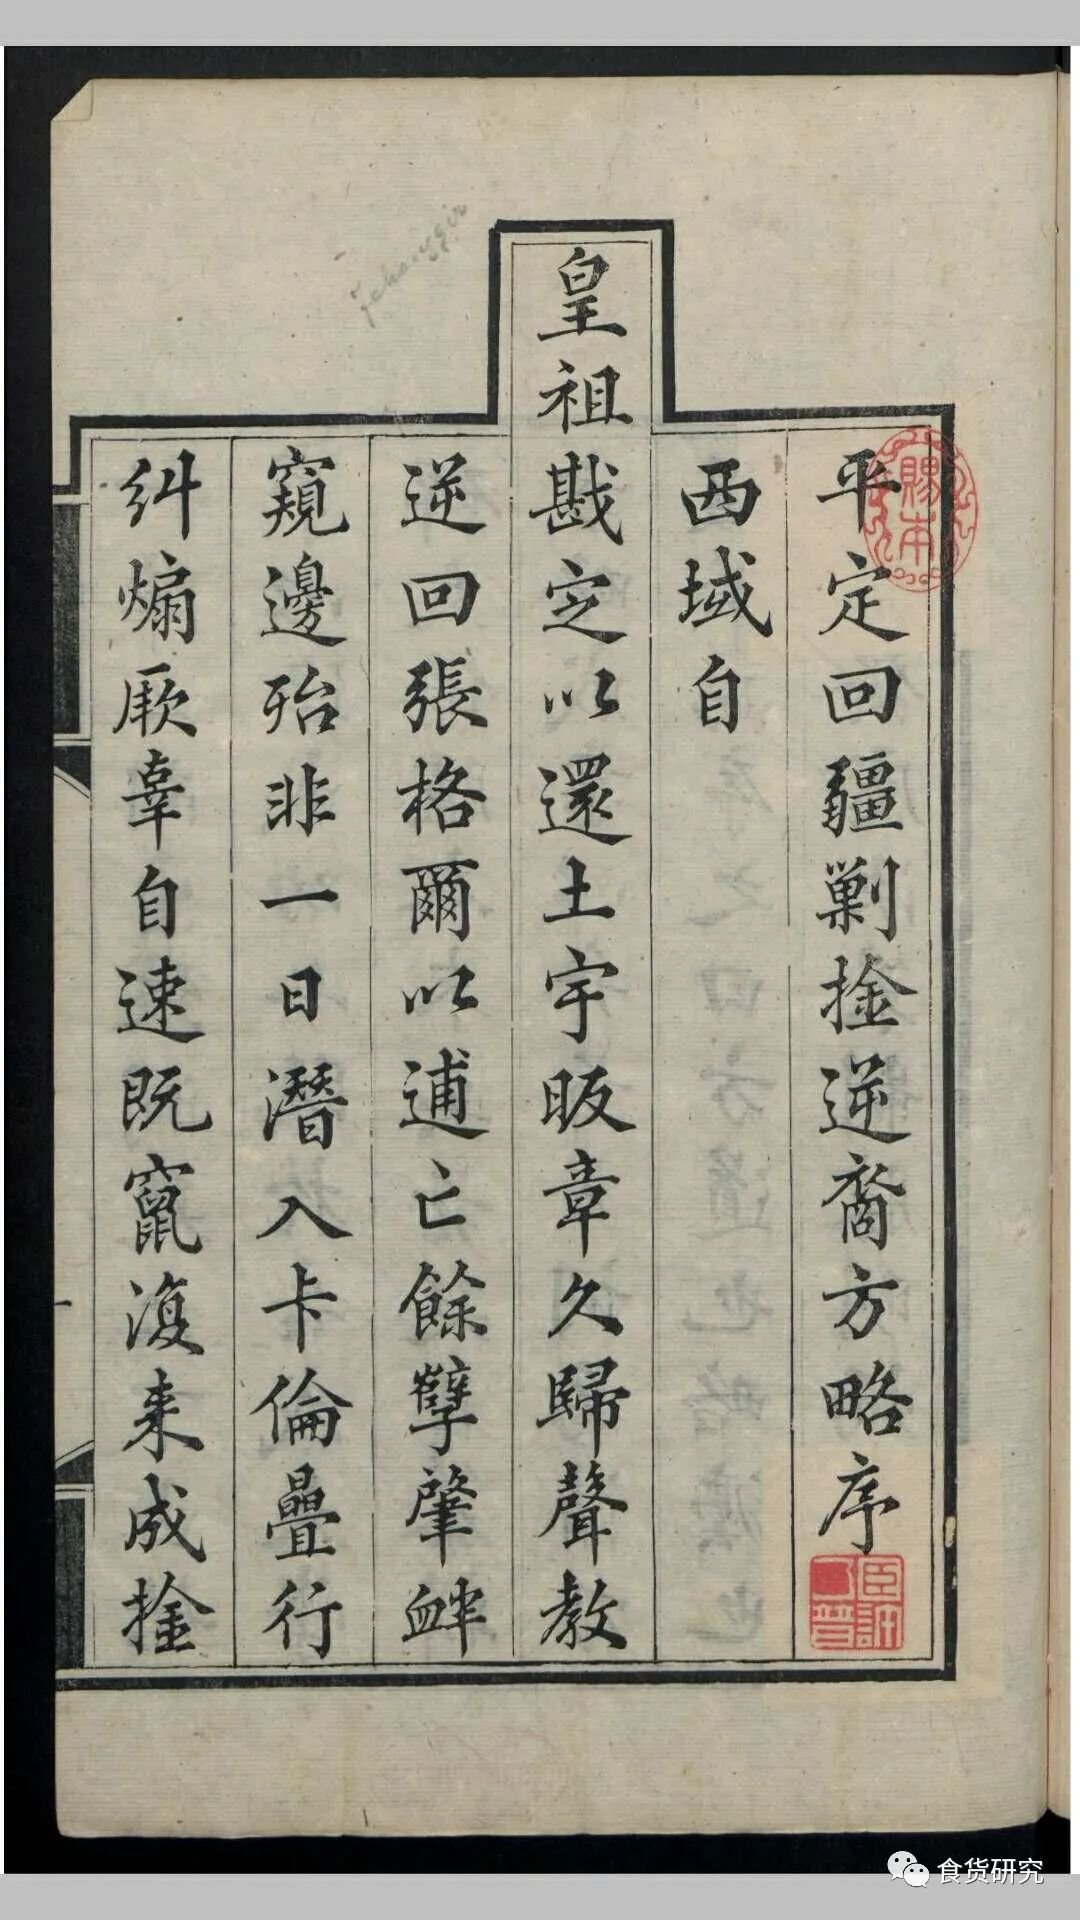 平定回疆剿捡逆裔方略序
西域自
皇祖戡定以還土宇昄章久歸聲教
逆回張格爾以逋亡餘孽肇衅
窺邊殆非一日潛入卡倫疊行
糾煽厥辜自速既竄復来成捡
賜本
Jehangir
食货研究